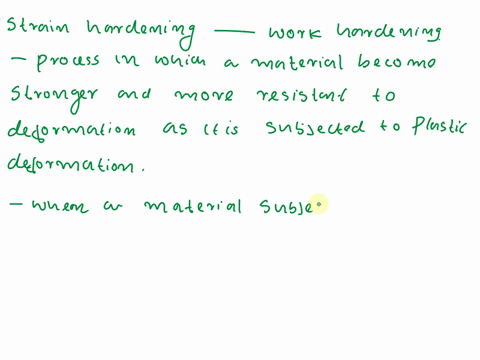 Strain hardening — work hardening
- process in which a material become
stronger and more resistant to
deformation as it is subjected to plastic
deformation.
- when a material subje